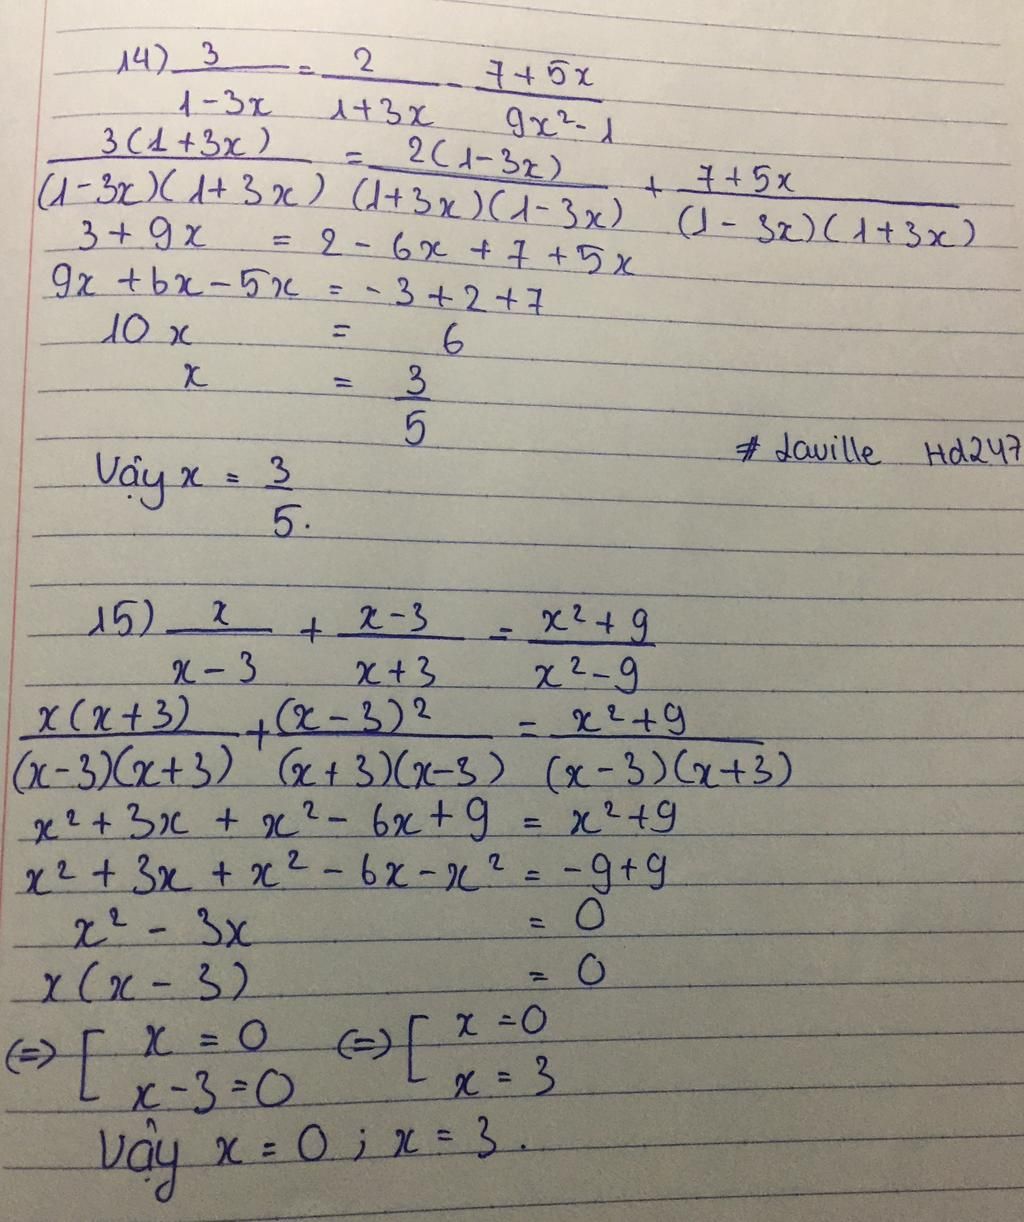 14) 3/(1-3x) = 2/(1+3x) - (7+5x)/(9x²-1)
3(1+3x)/((1-3x)(1+3x)) = 2(1-3x)/((1+3x)(1-3x)) + (7+5x)/((1-3x)(1+3x))
3+9x = 2-6x+7+5x
9x+6x-5x = -3+2+7
10x = 6
x = 3/5
# Laville Hd247
Vậy x = 3/5.
15) x/(x-3) + (x-3)/(x+3) = (x²+9)/(x²-9)
x(x+3)/((x-3)(x+3)) + (x-3)²/((x+3)(x-3)) = (x²+9)/((x-3)(x+3))
x²+3x+x²-6x+9 = x²+9
x²+3x+x²-6x-x² = -9+9
x²-3x = 0
x(x-3) = 0
(=) [ x=0 (=) [ x=0
x-3=0 x=3
Vậy x=0; x=3.